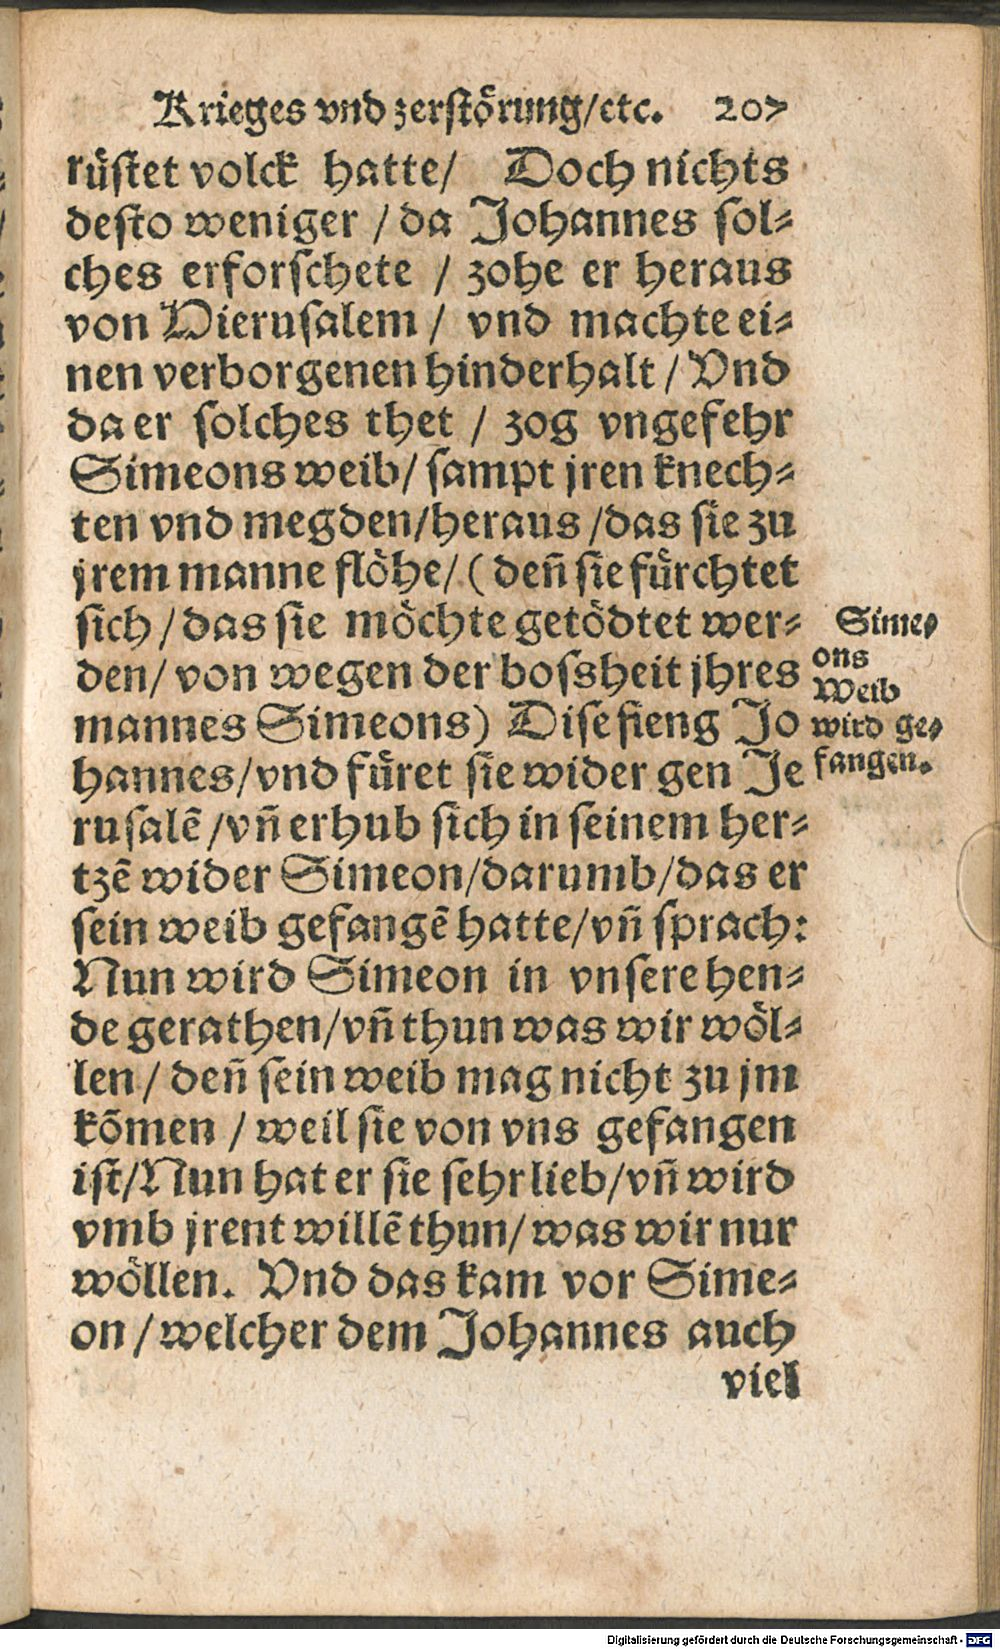 Krieges vnd zerstörung/etc. 207
rüstet volck hatte/ Doch nichts
desto weniger / da Johannes sol⸗
ches erforschete / zohe er heraus
von Hierusalem / vnd machte ei⸗
nen verborgenen hinderhalt / Vnd
da er solches thet / zog vngefehr
Simeons weib/ sampt jren knech⸗
ten vnd megden/heraus /das sie zu
jrem manne flöhe/ ( deñ sie fürchtet
sich / das sie möchte getödtet wer⸗
den/ von wegen der bossheit jhres
mannes Simeons) Dise fieng Jo
hannes/vnd füret sie wider gen Je
rusalē /vñ erhub sich in seinem her⸗
tzē wider Simeon/darumb/das er
sein weib gefangē hatte/vñ sprach:
Nun wird Simeon in vnsere hen⸗
de gerathen/vñ thun was wir wöl⸗
len / deñ sein weib mag nicht zu jm
kōmen / weil sie von vns gefangen
ist/Nun hat er sie sehr lieb/vñ wird
vmb jrent willē thun/ was wir nur
wöllen. Vnd das kam vor Sime⸗
on / welcher dem Johannes auch
viel
Sime⸗
ons
Weib
wird ge⸗
fangen.
Digitalisierung gefördert durch die Deutsche Forschungsgemeinschaft - DFG